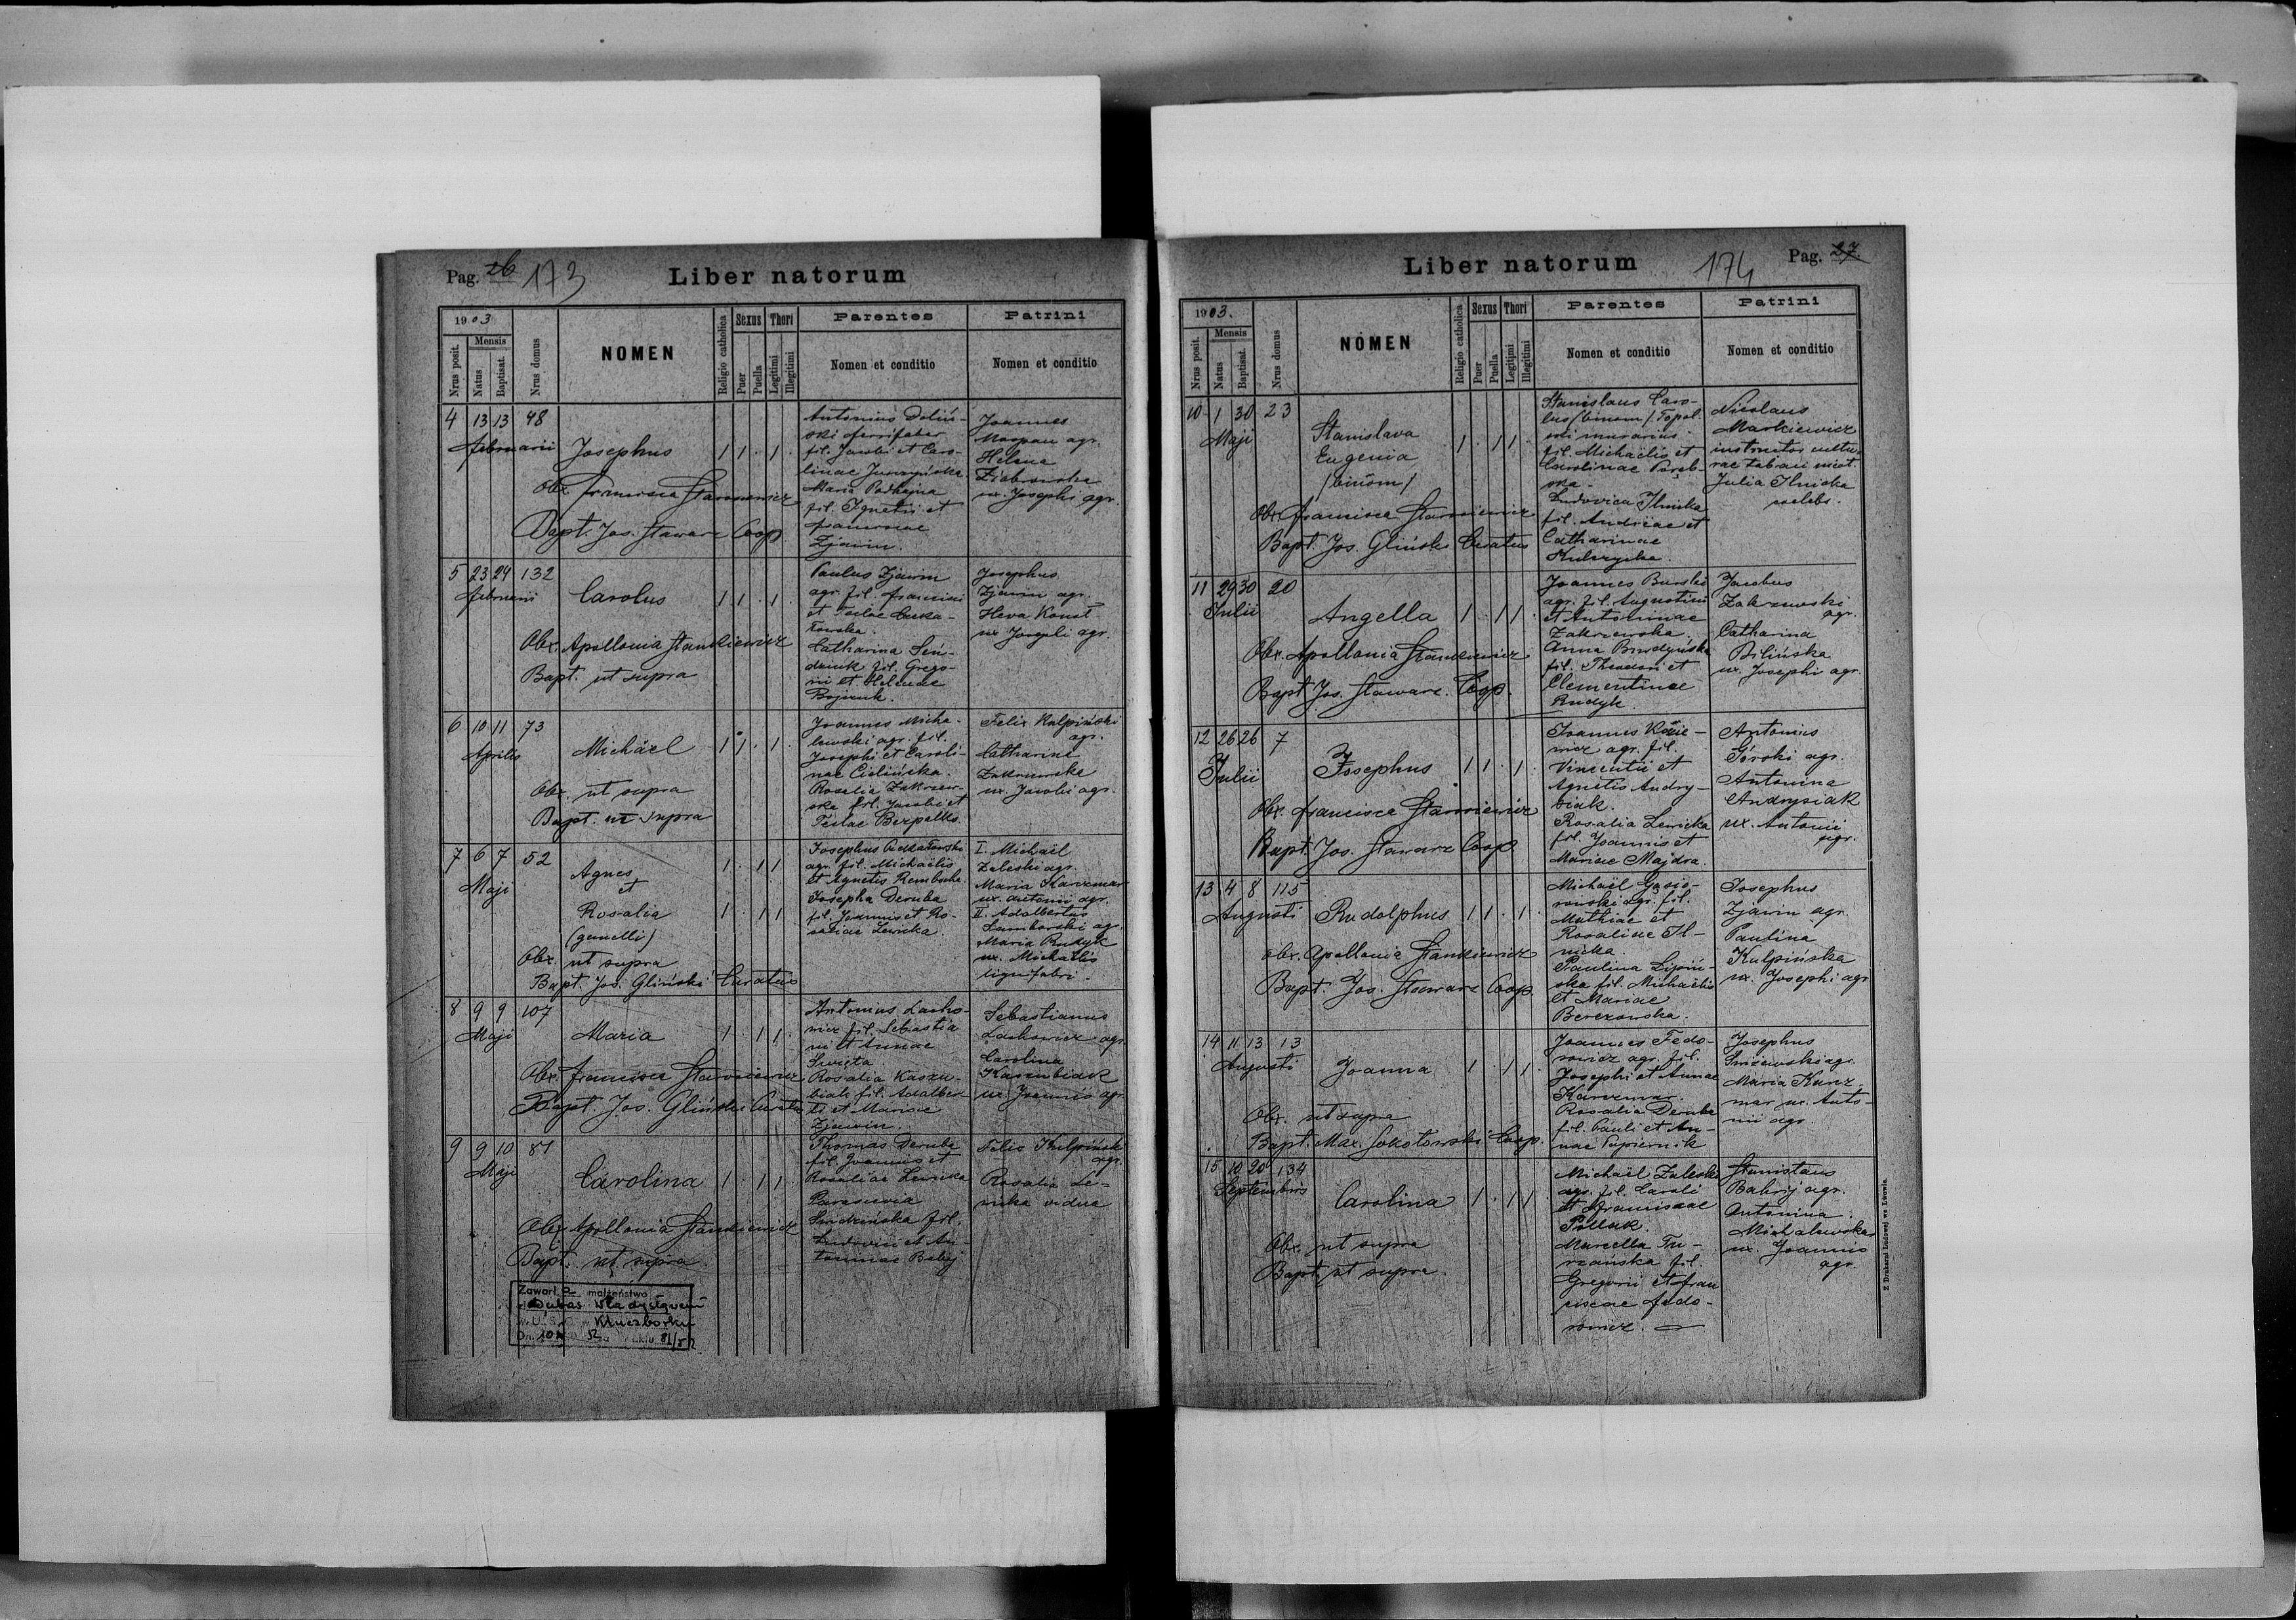 Pag. 26 173 Liber natorum
1903
Nrus posit.
Mensis
Natus
Baptisat.
Nrus domus
NOMEN
Religio catholica
Sexus
Puer
Puella
Thori
Legitimi
Illegitimi
Parentes
Nomen et conditio
Patrini
Nomen et conditio
4 13 13 98
februarii
Josephus 1 1 . 1 .
Obx. Francisca
Bapt. Jos. Stawarz Coop.
Antonius Doliń-
ski
fil. Jacobi et Caro-
linae
Maria Podhajna
fil. Ignatii et
Franciscae
Zjawin.
Joannes
agr.
Helena
Ziobrowska
ux. Josephi agr.
5 23 24 132
februarii
Carolus 1 1 . 1 .
Obx. Apollonia Stankiewicz
Bapt. ut supra
Paulus Zjawin
agr. fil. Francisci
et Teclae Cucka-
łowska.
Catharina
fil. Grego-
rii et Helenae
Josephus
Zjawin agr.
Heva
ux agr.
6 10 11 73
Aprilis
Michäel 1 1 . 1 .
Obx. ut supra
Bapt. ut supra
Joannes Micha-
lewski agr. fil.
Josephi et Caroli-
nae Cielińska.
Rosalia Zakrzew-
ska fil. Jacobi et
Teclae Berpalko
Felix Kulpiński
agr.
Catharina
Zakrzewska
ux. Jacobi agr.
7 6 7 52
Maji
Agnes 1 . 1 1
et
Rosalia 1 . 1 1
(gemelli)
Obx. ut supra
Bapt. Jos. Gliński Curatus
Josephus
agr. fil. Michäelis
et Agnetis
Josepha Deruba
fil. Joannis et Ro-
saliae Lewicka.
I. Michäel
Zaleski agr.
Maria Karzmar
ux. Antonii agr.
II. Adalbertus
Samborski agr.
Maria Rudyk
ux. Michäelis
lignifabri.
8 9 9 107
Maji
Maria 1 . 1 1 .
Obx. Francisca
Bapt. Jos. Gliński
Antonius Lacho-
wicz fil. Sebastia
ni et Annae
Swięta.
Rosalia Kaszu-
biak fil. Adalber-
ti et Mariae
Zjawin.
Sebastianus
Lachowicz agr.
Carolina
Kaszubiak
ux. Joannis agr.
9 9 10 81
Maji
Carolina 1 . 1 1 .
Obx. Apollonia Stankiewicz
Bapt. ut supra.
Thomas Deruba
fil. Joannis et
Rosaliae Lewicka
Parascevia
fil.
Ludovici et An-
toninae Babij
Felix Kulpiński
agr.
Rosalia Le-
wicka vidua
Zawarła małżeństwo
Dubas Władysławem
w U.S.C. w Kluczborku
Liber natorum 174 Pag. 27
1903.
Nrus posit.
Mensis
Natus
Baptisat.
Nrus domus
NOMEN
Religio catholica
Sexus
Puer
Puella
Thori
Legitimi
Illegitimi
Parentes
Nomen et conditio
Patrini
Nomen et conditio
10 1 30 23
Maji
Stanislava 1 . 1 1 .
Eugenia
/binom/
Obx. Francisca
Bapt. Jos. Gliński Curatus
Stanislaus Caro-
lus /binom/
murarius
fil. Michäelis et
Carolinae
Ludovica Ilnicka
fil. Andreae et
Catharinae
Kulczycka.
Nicolaus
Markiewicz
instructor
Julia Ilnicka
caelebs.
11 29 30 20
Julii
Angella 1 . 1 1 .
Obx. Apollonia Stankiewicz
Bapt Jos. Stawarz. Coop.
Joannes Burski
agr. fil. Augustini
et Antoninae
Zakrzewska.
Anna
fil. Theodori et
Clementinae
Rudyk.
Jacobus
Zakrzewski
agr.
Catharina
Bilińska
ux. Josephi agr.
12 26 26 7
Julii
Josephus 1 1 . 1 .
Obx. Francisca
Bapt. Jos. Stawarz Coop.
Joannes
agr. fil.
Vincentii et
Agnetis Andry-
siak.
Rosalia Lewicka
fil. Joannis et
Mariae Majdra.
Antonius
Górski agr.
Antonina
Andrysiak
ux. Antonii
agr.
13 4 8 115
Augusti
Rudolphus 1 1 . 1 .
Obx. Apollonia Stankiewicz
Bapt. Jos. Stawarz Coop.
Michäel Gąsio-
rowski agr. fil.
Mathiae et
Rosaliae Il-
nicka.
Paulina Lipiń-
ska fil. Michäelis
et Mariae
Berezowska.
Josephus
Zjawin agr.
Paulina
Kulpińska
ux. Josephi agr
14 11 13 13
Augusti
Joanna 1 . 1 1 .
Obx. ut supra
Bapt. Max. Sokołowski Coop.
Joannes Fedo-
rowicz agr. fil.
Josephi et Annae
Karzmar.
Rosalia Deruba
fil. Pauli et An-
nae Papiernik
Josephus
agr.
Maria Karz-
mar ux. Anto-
nii agr.
15 10 20 134
Septembris
Carolina 1 . 1 1
Obx. ut supra
Bapt. ut supra
Michäel Zaleski
agr. fil. Caroli
et Franciscae
Pollak.
Marcella Tu-
rzańska fil.
Gregorii et Fran
ciscae Fedo-
rowicz.
Stanislaus
Babij agr.
Antonina
Michalewska
ux. Joannis
agr.
Z Drukarni Ludowej we Lwowie.